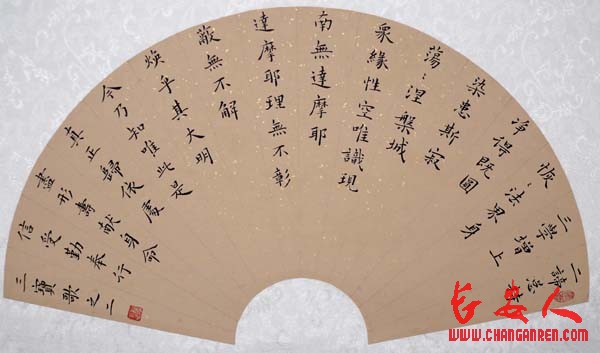 二諦總持
三學增上
恢〻法界身
淨得既圓
染患斯寂
蕩〻涅槃城
衆緣性空唯識現
南無達摩耶
達摩耶理無不彰
蔽無不解
煥乎其大明
今乃知唯此是
真正歸依處
盡形壽獻身命
信受勤奉行
三寶歌之二
长安人
WWW.CHANGANREN.COM